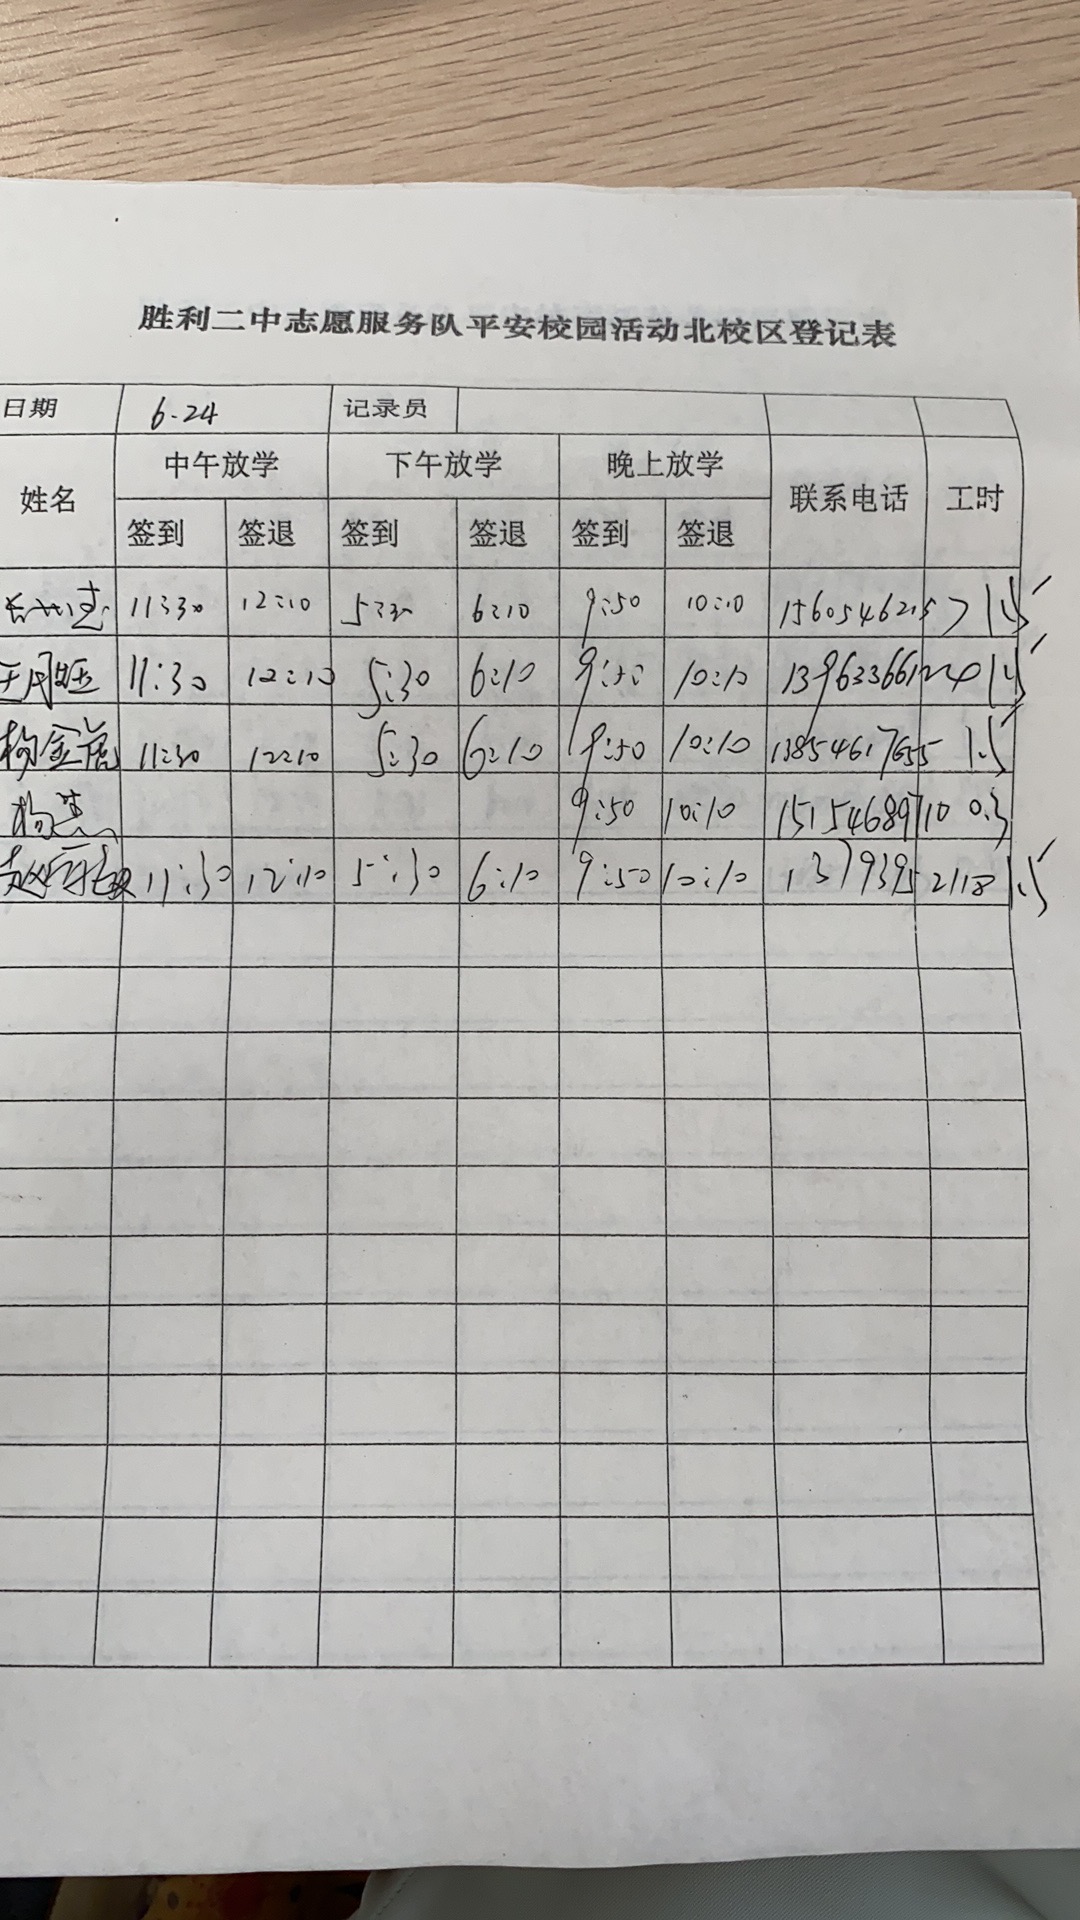 胜利二中志愿服务队平安校园活动北校区登记表
日期 6.24 记录员
姓名 中午放学 下午放学 晚上放学 联系电话 工时
签到 签退 签到 签退 签到 签退
11:30 12:10 5:30 6:10 9:50 10:10 15605462157 1.5
11:30 12:10 5:30 6:10 9:50 10:10 1.5
杨金 11:30 12:10 5:30 6:10 9:50 10:10 13854617655 1.5
杨 9:50 10:10 15154689710 0.3
赵 11:30 12:10 5:30 6:10 9:50 10:10 13793952118 1.5